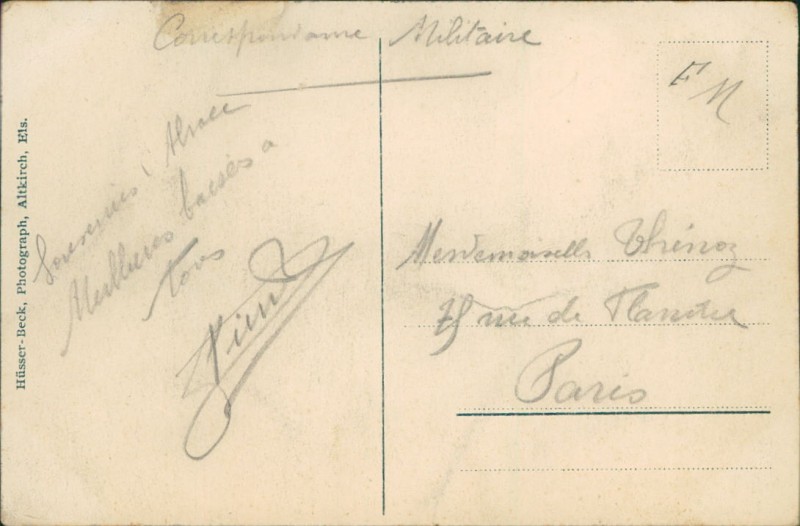 Correspondance Militaire
F M
Souvenirs d'Alsace
Meilleurs baisers a
Tous
Mesdemoiselles Thénoz
75 rue de Flandre
Paris
Hüsser-Beck, Photograph, Altkirch, Els.